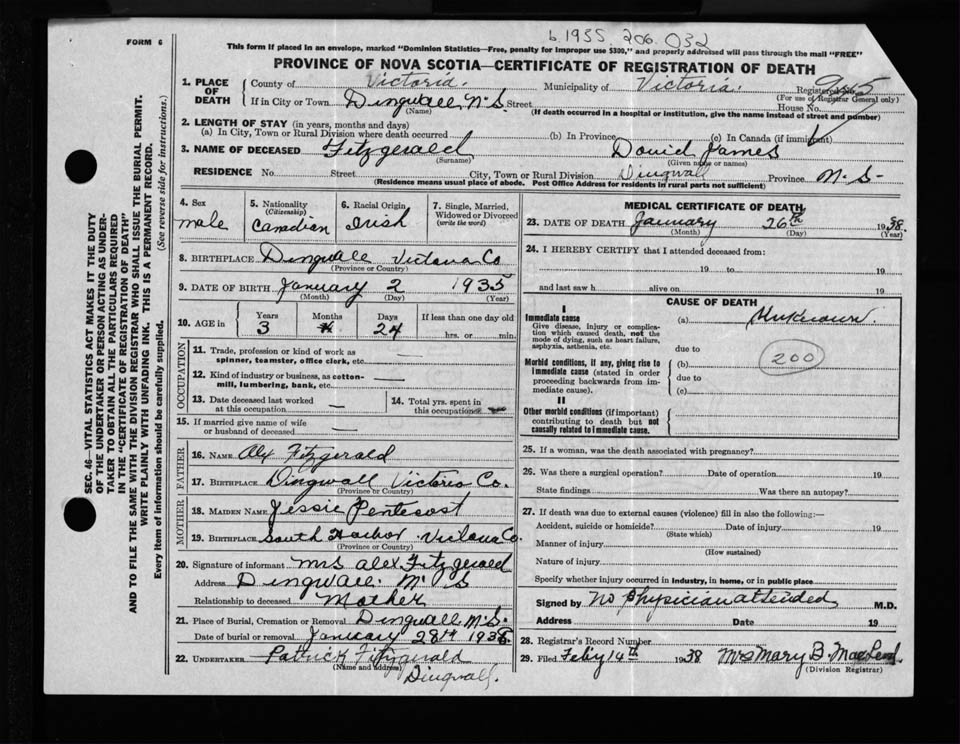 b 1935 206 032
FORM 6
This form if placed in an envelope, marked "Dominion Statistics—Free, penalty for improper use $300," and properly addressed will pass through the mail "FREE"
PROVINCE OF NOVA SCOTIA—CERTIFICATE OF REGISTRATION OF DEATH
1. PLACE OF DEATH County of Victoria. Municipality of Victoria. Registered No.
(For use of Registrar General only)
If in City or Town Dingwall N.S. Street House No.
(Name) (If death occurred in a hospital or institution, give the name instead of street and number)
2. LENGTH OF STAY (in years, months and days)
(a) In City, Town or Rural Division where death occurred (b) In Province (c) In Canada (if immigrant)
3. NAME OF DECEASED Fitzgerald David James
(Surname) (Given name or names)
RESIDENCE No. Street City, Town or Rural Division Dingwall Province N.S-
(Residence means usual place of abode. Post Office Address for residents in rural parts not sufficient)
4. Sex male
5. Nationality (Citizenship) Canadian
6. Racial Origin Irish
7. Single, Married, Widowed or Divorced (write the word)
8. BIRTHPLACE Dingwall Victoria Co
(Province or Country)
9. DATE OF BIRTH January 2 1935
(Month) (Day) (Year)
10. AGE in Years Months Days If less than one day old
3 24 hrs. or min.
OCCUPATION
11. Trade, profession or kind of work as spinner, teamster, office clerk, etc. —
12. Kind of industry or business, as cotton-mill, lumbering, bank, etc. —
13. Date deceased last worked at this occupation —
14. Total yrs. spent in this occupation
15. If married give name of wife or husband of deceased —
FATHER
16. NAME Alex Fitzgerald
17. BIRTHPLACE Dingwall Victoria Co.
(Province or Country)
MOTHER
18. MAIDEN NAME Jessie Pentecost
19. BIRTHPLACE South Harbor Victoria Co.
(Province or Country)
20. Signature of informant Mrs Alex Fitzgerald
Address Dingwall. N. S
Relationship to deceased Mother
21. Place of Burial, Cremation or Removal Dingwall N.S.
Date of burial or removal January 28th 1938
22. UNDERTAKER Patrick Fitzgerald
(Name and address)
Dingwall.
MEDICAL CERTIFICATE OF DEATH
23. DATE OF DEATH January 26th 1938.
(Month) (Day) (Year)
24. I HEREBY CERTIFY that I attended deceased from:
19 to 19
and last saw h alive on 19
CAUSE OF DEATH
I
Immediate cause (a) Unknown.
Give disease, injury or complication which caused death, not the mode of dying, such as heart failure, asphyxia, asthenia, etc.
due to
200
Morbid conditions, if any, giving rise to immediate cause (stated in order proceeding backwards from immediate cause).
(b)
due to
(c)
II
Other morbid conditions (if important) contributing to death but not causally related to immediate cause.
25. If a woman, was the death associated with pregnancy?
26. Was there a surgical operation? Date of operation 19
State findings Was there an autopsy?
27. If death was due to external causes (violence) fill in also the following:—
Accident, suicide or homicide? Date of injury 19
(State which)
Manner of injury
(How sustained)
Nature of injury
Specify whether injury occurred in industry, in home, or in public place
Signed by No Physician attended M.D.
Address Date 19
28. Registrar's Record Number
29. Filed Feb'y 14th 1938 Mrs Mary B. MacLeod.
(Division Registrar)
SEC. 46—VITAL STATISTICS ACT MAKES IT THE DUTY
OF THE UNDERTAKER OR PERSON ACTING AS UNDER-
TAKER TO OBTAIN ALL THE PARTICULARS REQUIRED
IN THE "CERTIFICATE OF REGISTRATION OF DEATH"
AND TO FILE THE SAME WITH THE DIVISION REGISTRAR WHO SHALL ISSUE THE BURIAL PERMIT.
WRITE PLAINLY WITH UNFADING INK. THIS IS A PERMANENT RECORD.
Every item of information should be carefully supplied. (See reverse side for instructions.)